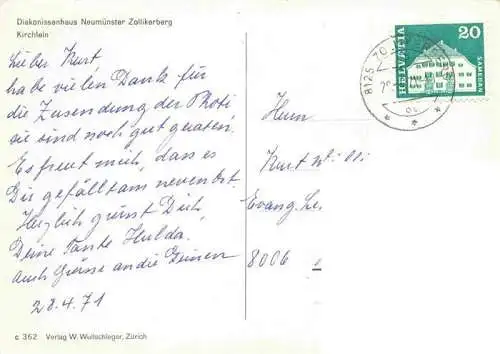 Diakonissenhaus Neumünster Zollikerberg
Kirchlein
Lieber Kurt
habe vielen Dank für
die Zusendung der Photi
sie sind noch gut geraten.
Es freut mich, dass es
Dir gefällt am neuen Ort.
Herzlich grüsst Dich,
Deine Tante Hulda.
auch Grüsse an die Deinen
28.4.71
c 362 Verlag W. Wullschleger, Zürich
HELVETIA
20
SAMEDAN
8125 ZO
Herrn
Kurt Willi
Evang. Le
8006